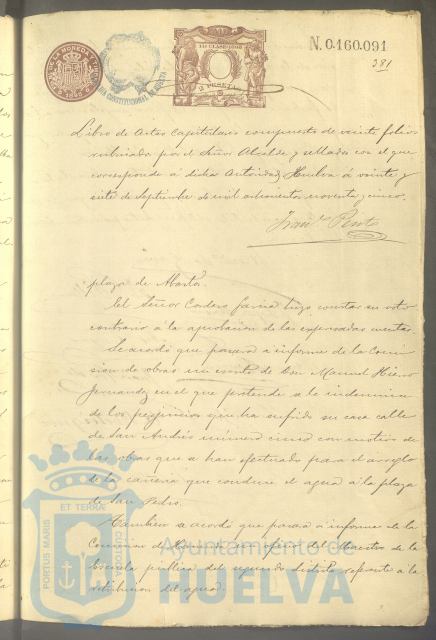 N. 0.160.091
381
11ª CLASE
2 PESETAS
Libro de Actas Capitulares compuesto de veinte folios
rubricados por el Señor Alcalde y sellados con el que
corresponde á dicha Autoridad. Huelva á veinte y
siete de Septiembre de mil ochocientos noventa y cinco.
plaza de Abastos.
El Señor Cordero García hizo constar su voto
contrario á la aprobacion de las expresadas cuentas.
Se acordó que pasara á informe de la Comi-
sion de obras un escrito de Don Manuel Hierro
Fernandez en el que pretende se le indemnice
de los perjuicios que ha sufrido su casa calle
de San Andrés número cinco con motivo de
las obras que se han efectuado para el arreglo
de la cañeria que conduce el agua á la plaza
de San Pedro.
Tambien se acordó que pasara á informe de la
Comision de un oficio del Maestro de la
Escuela pública del segundo distrito referente á la
del agua
PORTUS MARIS ET TERRAE CUSTODIA
Ayuntamiento de
HUELVA